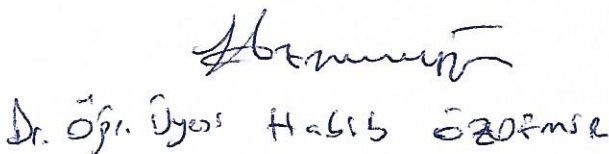 Dr. Öğr. Üyesi Habib ÖZDEMİR